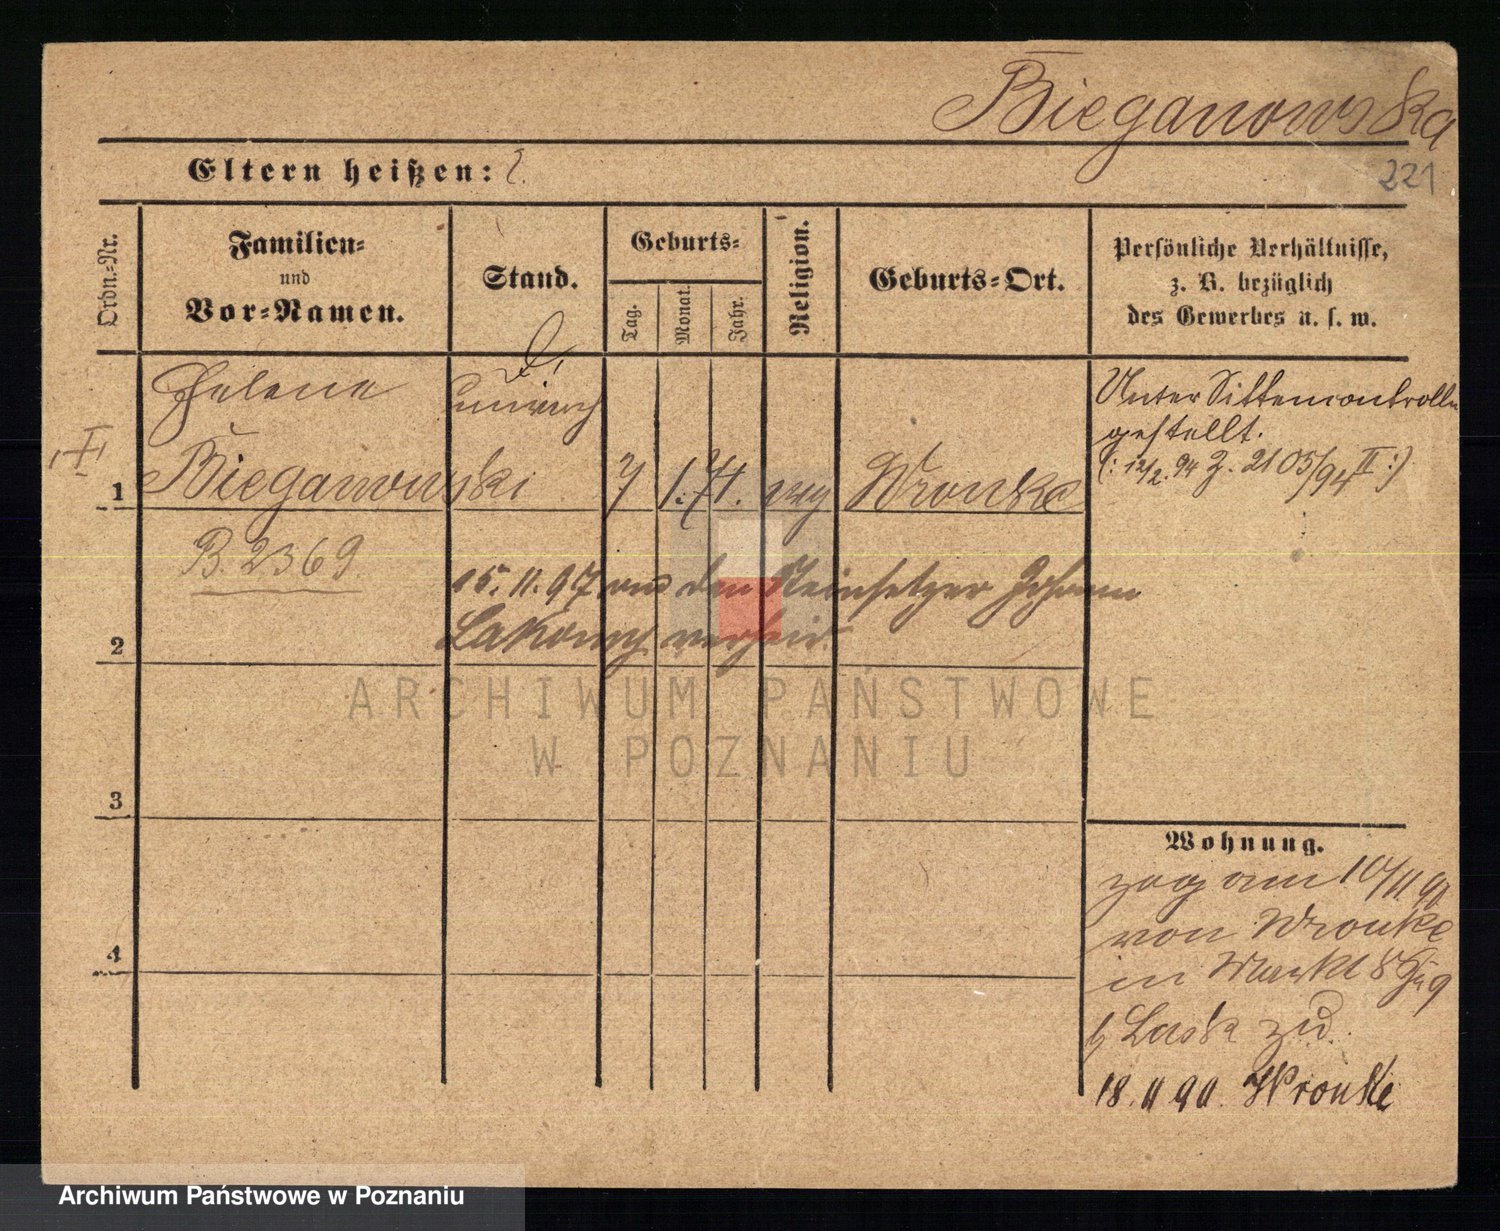 Bieganowska
221
Eltern heißen: ?
Ordn.-Nr.
Familien-
und
Vor-Namen.
Stand.
Geburts-
Tag.
Monat.
Jahr.
Religion.
Geburts-Ort.
Persönliche Verhältnisse,
z. B. bezüglich
des Gewerbes u. s. w.
Helene
Bieganowski
7
1.
71.
Wronke
1
Unter Sittencontrolle
gestellt.
(: 12/2. 94 J. 2105/94 II :)
B. 2369
15. 11. 97. den Steinsetzer Johann
Lakomy verheir.
2
3
4
Wohnung.
zog am 10/11 90
von Wronke
in Markt 8
b Lask zu.
18. 11 90. Wronke
ARCHIWUM PAŃSTWOWE
W POZNANIU
Archiwum Państwowe w Poznaniu